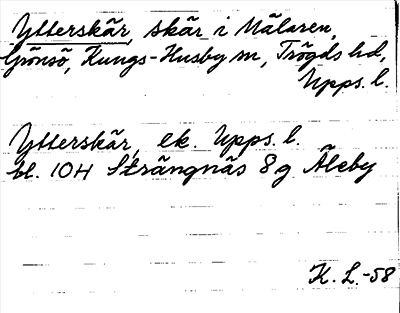 Ytterskär, skär i Mälaren,
Grönsö, Kungs-Husby sn, Trögds hd,
Upps. l.
Ytterskär, ek. Upps. l.
bl. 10H Strängnäs 8g Åleby
K. L. -58